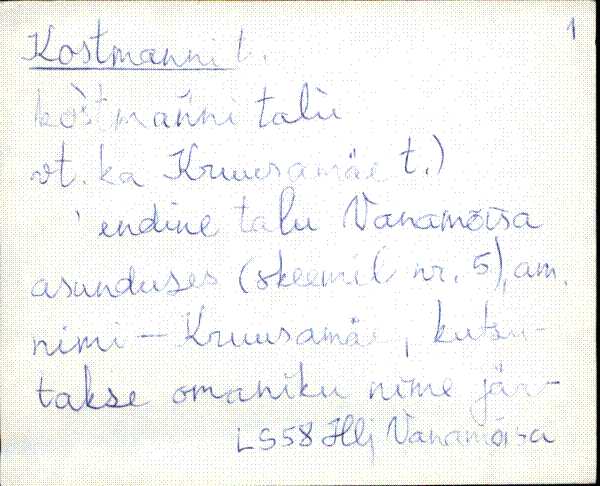 1
Kostmanni t.
kòstmaǹni talu
vt. ka Kruusamäe t.)
endine talu Vanamõisa
asunduses (skeemil nr. 5), am.
nimi – Kruusamäe, kutsu-
takse omaniku nime jär-
LS58 Hlj Vanamõisa